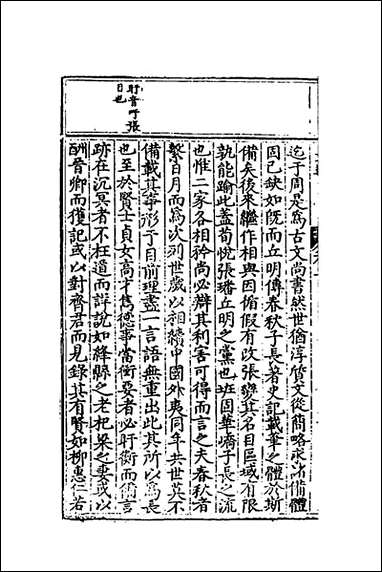 盱音吁張
目也
迄于周是爲古文尚書然世猶淳質文從簡略求諸備體
固已缺如既而丘明傳春秋子長著史記載筆之體於斯
備矣後來繼作相與因循假有改張變其名目區域有限
孰能踰此蓋荀悅張璠丘明之黨也班固華嶠子長之流
也惟二家各相矜尚必辨其利害可得而言之夫春秋者
繫日月而爲次列世歲以相續中國外夷同年共世莫不
備載其事形于目前理盡一言語無重出此其所以爲長
也至於賢士貞女高才雋德事當衝要者必盱衡而備言
跡在沉冥者不枉道而詳說如絳縣之老杞梁之妻或以
酬晉卿而獲記或以對齊君而見錄其有賢如柳惠仁若